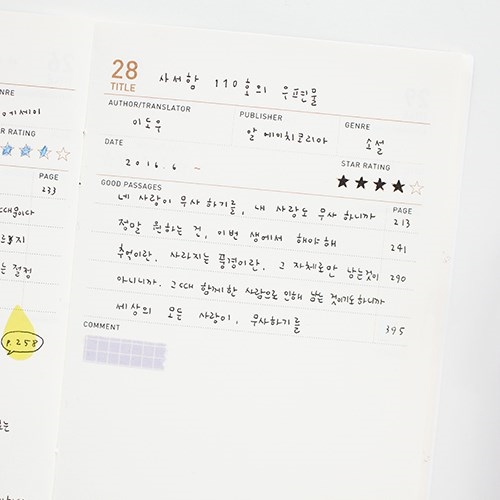 28
TITLE
사서함 110호의 우편물
AUTHOR/TRANSLATOR
이도우
PUBLISHER
알에이치코리아
GENRE
소설
DATE
2016. 6 -
STAR RATING
GOOD PASSAGES
PAGE
네 사랑이 무사하기를, 내 사랑도 무사하니까
213
정말 원하는 건, 이번 생에서 해야해
241
추억이란, 사라지는 풍경이란, 그 자체로만 남는것이
290
아니니까. 그때 함께한 사람으로 인해 남는 것이기도하니까
세상의 모든 사랑이, 무사하기를
395
COMMENT
NRE
에세이
RATING
PAGE
233
는 절정
P.258